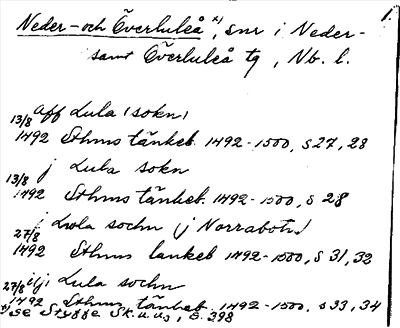 1.
Neder-och Överluleå x), snr i Neder-
samt Överluleå tg, Nb. l.
aff Lula (sokn)
13/8
1492 Sthms tänkeb. 1492-1500, s 27, 28
j Lula sokn
13/8
1492 Sthms tänkeb. 1492-1500, s 28
i Lwla sochn (j Norrabotn)
27/8
1492 Sthms tankeb 1492-1500, s 31, 32
j Lula sochn
27/8
1492 Sthms tänkeb. 1492-1500, s 33, 34
x) se Stygge Sk. u. u s, s. 398